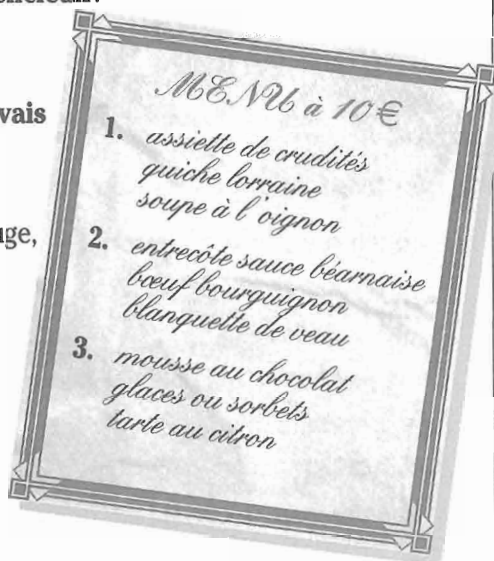 vais
uge,
MENU à 10 €
1. assiette de crudités
quiche lorraine
soupe à l'oignon
2. entrecôte sauce béarnaise
bœuf bourguignon
blanquette de veau
3. mousse au chocolat
glaces ou sorbets
tarte au citron